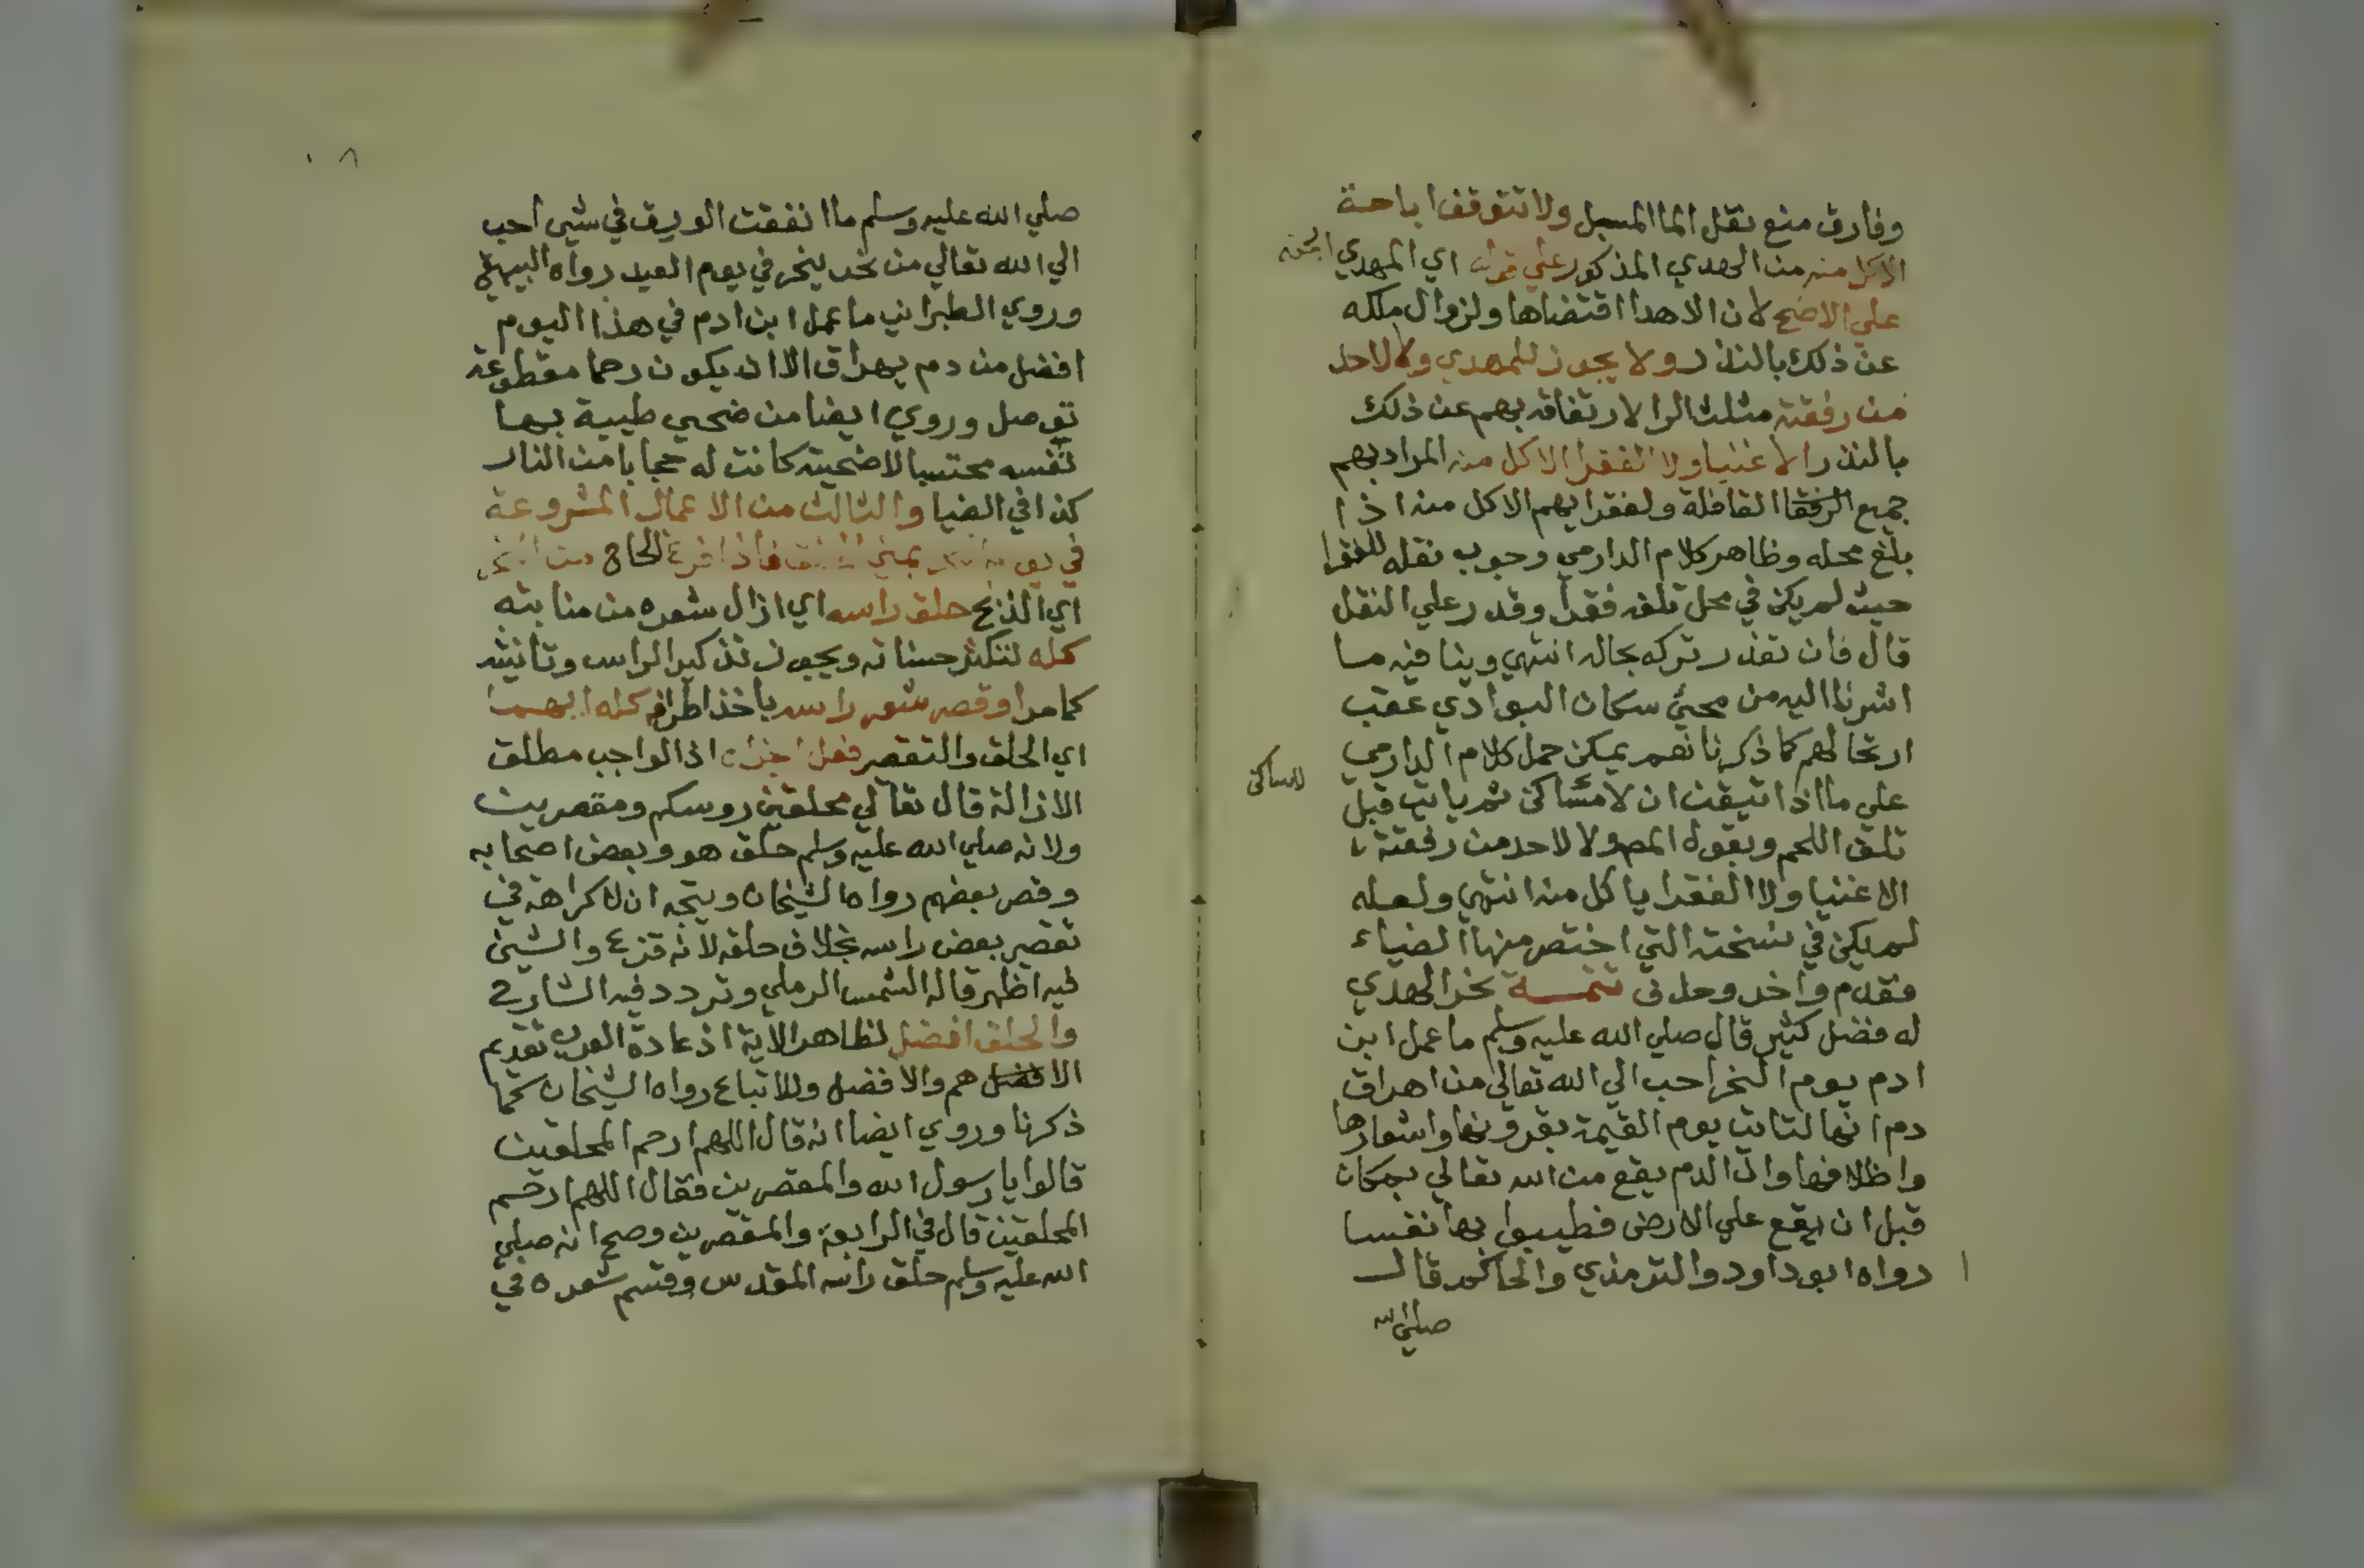 وفارق منع نقل الما المسبل ولا تتوقف اباحة
الاكل منه من الهدي المذكور علي قوله اي المهدي ابحته
علي الاصح لان الاهدا اقتضاها ولزوال ملكه
عن ذلك بالنذر ولا يجوز للمهدي ولا لاحد
من رفقته مثلث الرا لارتفاقه بهم عن ذلك
بالنذر الاغنيا ولا الفقرا الاكل منه المراد بهم
جميع الرفقا القافلة ولفقرايهم الاكل منه اذا
بلغ محله وظاهر كلام الدارمي وجوب نقله للفقرا
حيث لم يكن في محل تلفه فقرا وقدر علي النقل
قال فان تعذر تركه بحاله انتهي وينافيه ما
اشرنا اليه من مجئ سكان البوادي عقب
ارتحالهم كما ذكرنا نعم يمكن حمل كلام الدارمي
علي ما اذا تيقن ان لا مساكن ثم ياتي قبل
للساكن
تلف اللحم وبقوله المص ولا لاحد من رفقته
الاغنيا ولا الفقرا ياكل منه انتهي ولعله
لم يكن في نسخته التي اختصر منها الضياء
فقدم واخر وحذف تتمـــة نحر الهدي
له فضل كثير قال صلي الله عليه وسلم ما عمل ابن
ادم يوم النحر احب الي الله تعالي من اهراق
دم انها لتاتي يوم القيمة بقرونها واشعارها
واظلافها وان الدم يقع من الله تعالي بمكان
قبل ان يقع علي الارض فطيبوا بها نفسا
رواه ابو داود والترمذي والحاكم وقال
صلي الله
٨
صلي الله عليه وسلم ما انفقت الورق في شي احب
الي الله تعالي من نحر ينحر في يوم العيد رواه البيهقي
وروي الطبراني ما عمل ابن ادم في هذا اليوم
افضل من دم يهراق الا ان يكون رحما مقطوعة
توصل وروي ايضا من ضحي طيبة بها
نفسه محتسبا لاضحيته كانت له حجابا من النار
كذا في الضيا والثالث من الاعمال المشروعة
في يوم النحر بمني الحلق فاذا فرغ الحاج من النحر
اي الذبح حلق راسه اي ازال شعره من منابته
كله لتكثر حسناته ويجوز تذكير الراس وتانيثه
كما مر او قصر شعر راسه باخذ اطرافه كله ايهما
اي الحلق والتقصر فعل اجزاه اذ الواجب مطلق
الازالة قال تعالي محلقين روسكم ومقصرين
ولانه صلي الله عليه وسلم حلق هو وبعض اصحابه
وقصر بعضهم رواه الشيخان ويتجه ان لا كراهة في
تقصير بعض راسه بخلاف حلقه لانه قزع والشين
فيه اظهر قاله الشمس الرملي وتردد فيه الشارح
والحلق افضل لظاهر الاية اذ عادة العرب تقديم
الافضل هم والافضل وللاتباع رواه الشيخان كما
ذكرنا وروي ايضا انه قال اللهم ارحم المحلقين
قالوا يا رسول الله والمقصرين فقال اللهم ارحم
المحلقين قال في الرابعة والمقصرين وصح انه صلي
الله عليه وسلم حلق راسه المقدس وقسم شعره في